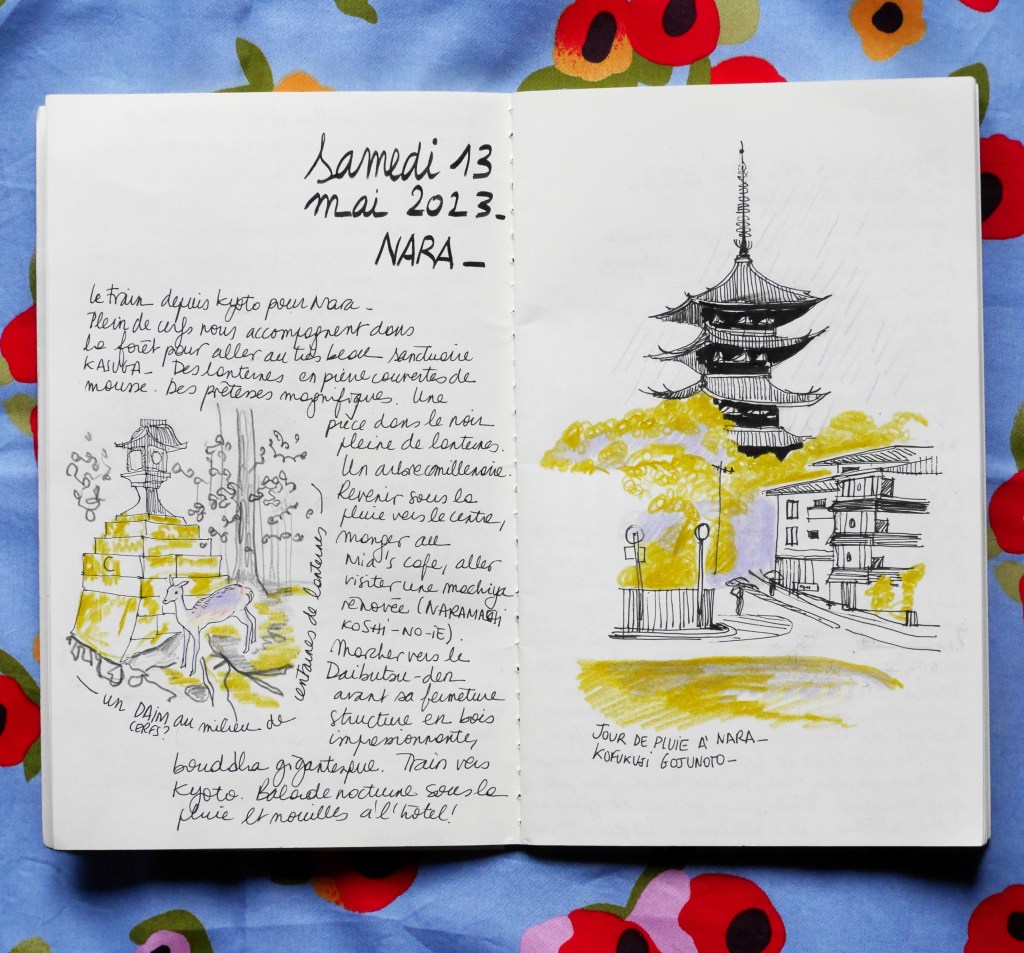 Samedi 13
mai 2023_
NARA_
le train depuis Kyoto pour Nara_
Plein de cerfs nous accompagnent dans
la forêt pour aller au très beau sanctuaire
KASUGA_ Des lanternes en pierre couvertes de
mousse. Des prêtesses magnifiques. Une
pièce dans le noir
pleine de lanternes.
Un arbre millenaire.
Revenir sous la
pluie vers le centre,
manger au
Mia's cafe, aller
visiter une machiya
rénovée (NARAMACHI
KOSHI-NO-IE).
Marcher vers le
Daibutsu-den
avant sa fermeture
structure en bois
impressionnante,
bouddha gigantesque. Train vers
Kyoto. Balade nocturne sous la
pluie et nouilles à l'hôtel!
un DAIM au milieu de centaines de lanternes
CERF?
JOUR DE PLUIE À NARA_
KOFUKUJI GOJUNOTO_